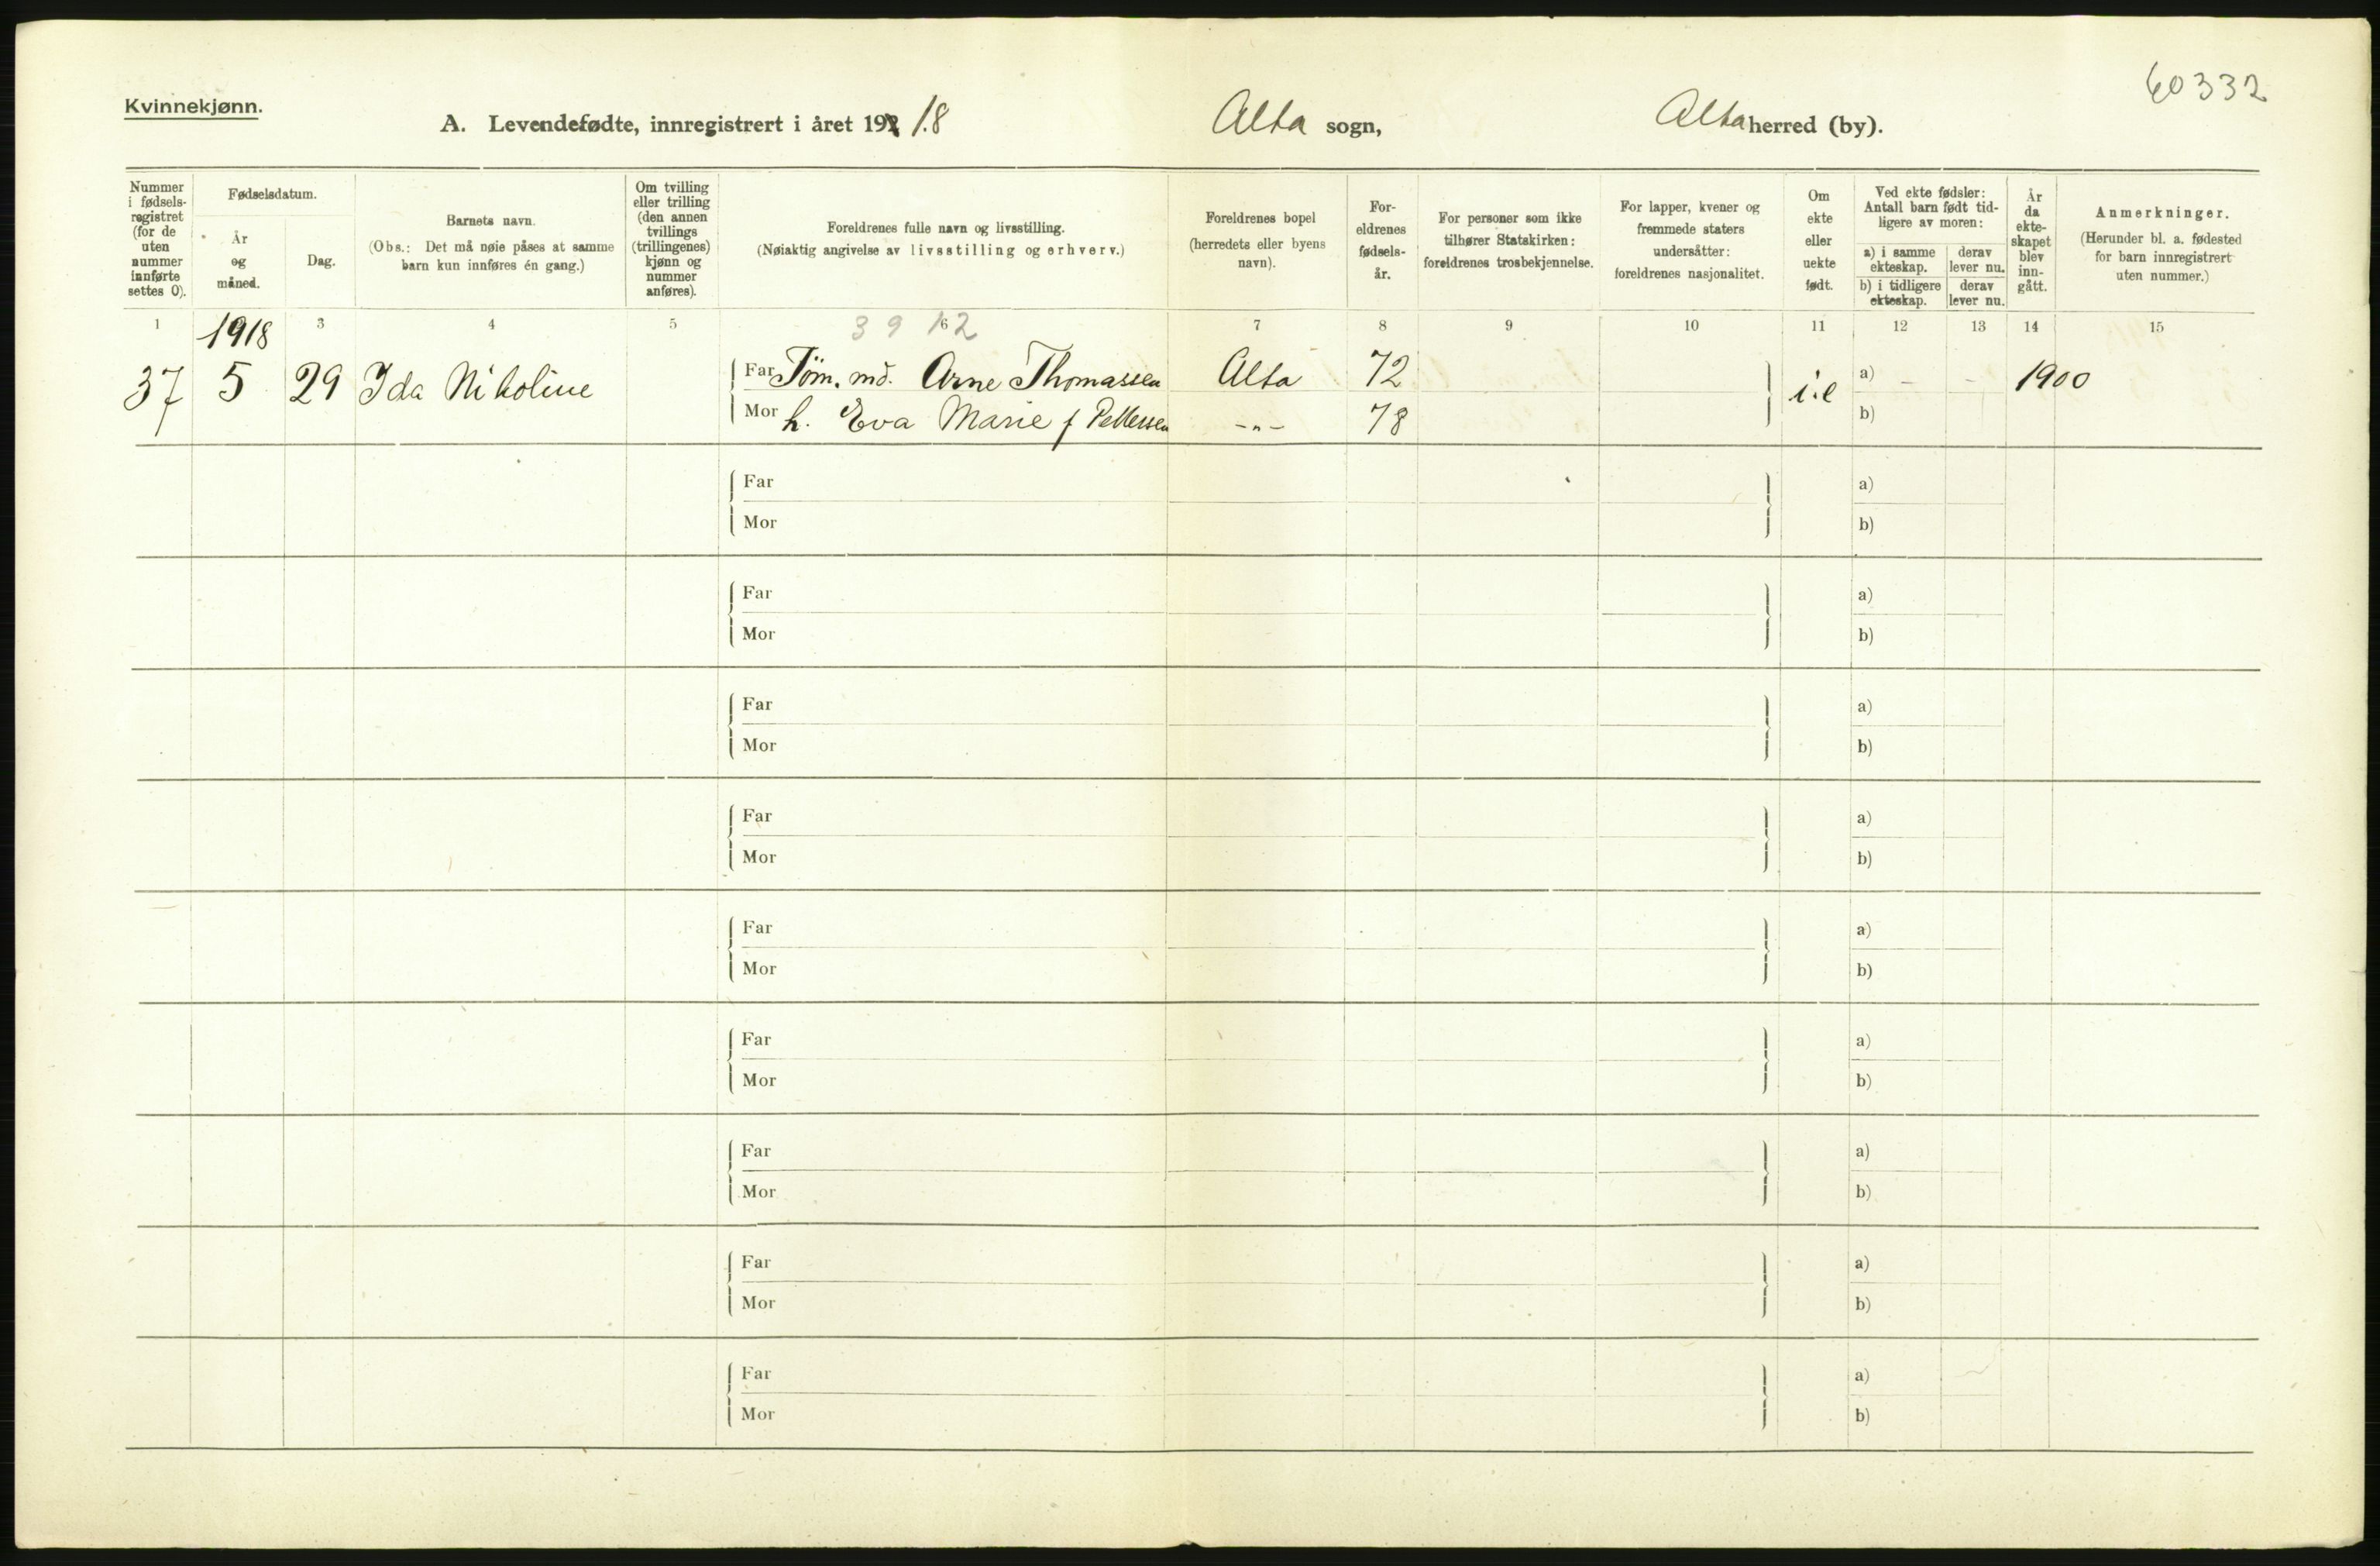 60332
Kvinnekjønn.
A. Levendefødte, innregistrert i året 192 18 Alta sogn, Alta herred (by).
Nummer i fødsels-registret (for de uten nummer innførte settes 0).
Fødselsdatum.
År og måned.
Dag.
Barnets navn.
(Obs.: Det må nøie påses at samme barn kun innføres én gang.)
Om tvilling eller trilling (den annen tvillings (trillingenes) kjønn og nummer anføres).
Foreldrenes fulle navn og livsstilling.
(Nøiaktig angivelse av livsstilling og erhverv.)
Foreldrenes bopel (herredets eller byens navn).
For-eldrenes fødsels-år.
For personer som ikke tilhører Statskirken: foreldrenes trosbekjennelse.
For lapper, kvener og fremmede staters undersåtter: foreldrenes nasjonalitet.
Om ekte eller uekte født.
Ved ekte fødsler: Antall barn født tid-ligere av moren:
a) i samme ekteskap.
derav lever nu.
b) i tidligere ekteskap.
derav lever nu.
År da ekte-skapet blev inn-gått.
Anmerkninger.
(Herunder bl. a. fødested for barn innregistrert uten nummer.)
1 1918 3 4 5 3 9 6 12 7 8 9 10 11 12 13 14 15
37 5 29 Ida Nikoline Far Töm. md. Arne Thomassen Alta 72 i.e a) - - 1900
Mor h. Eva Marie f Pettersen -"- 78 b)
Far a)
Mor b)
Far a)
Mor b)
Far a)
Mor b)
Far a)
Mor b)
Far a)
Mor b)
Far a)
Mor b)
Far a)
Mor b)
Far a)
Mor b)
Far a)
Mor b)